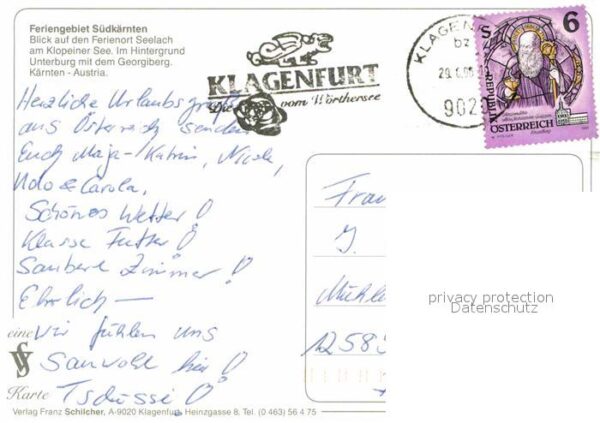 Feriengebiet Südkärnten
Blick auf den Ferienort Seelach
am Klopeiner See. Im Hintergrund
Unterburg mit dem Georgiberg.
Kärnten - Austria.
KLAGENFURT
Die vom Wörthersee
KLAGEN
bz
902
6
REPUBLIK
ÖSTERREICH
Herzliche Urlaubsgrüße
aus Österreich senden
Euch Maja-Katrin, Nicole,
Udo & Carola.
Schönes Wetter!
Klasse Futter!
Saubere Zimmer!
Ehrlich —
wir fühlen uns
Sauwohl hier!
Tschüssi!
eine
Karte
Frau
J.
Mühle
1258
privacy protection
Datenschutz
Verlag Franz Schilcher, A-9020 Klagenfurt, Heinzgasse 8, Tel. (0 463) 56 4 75